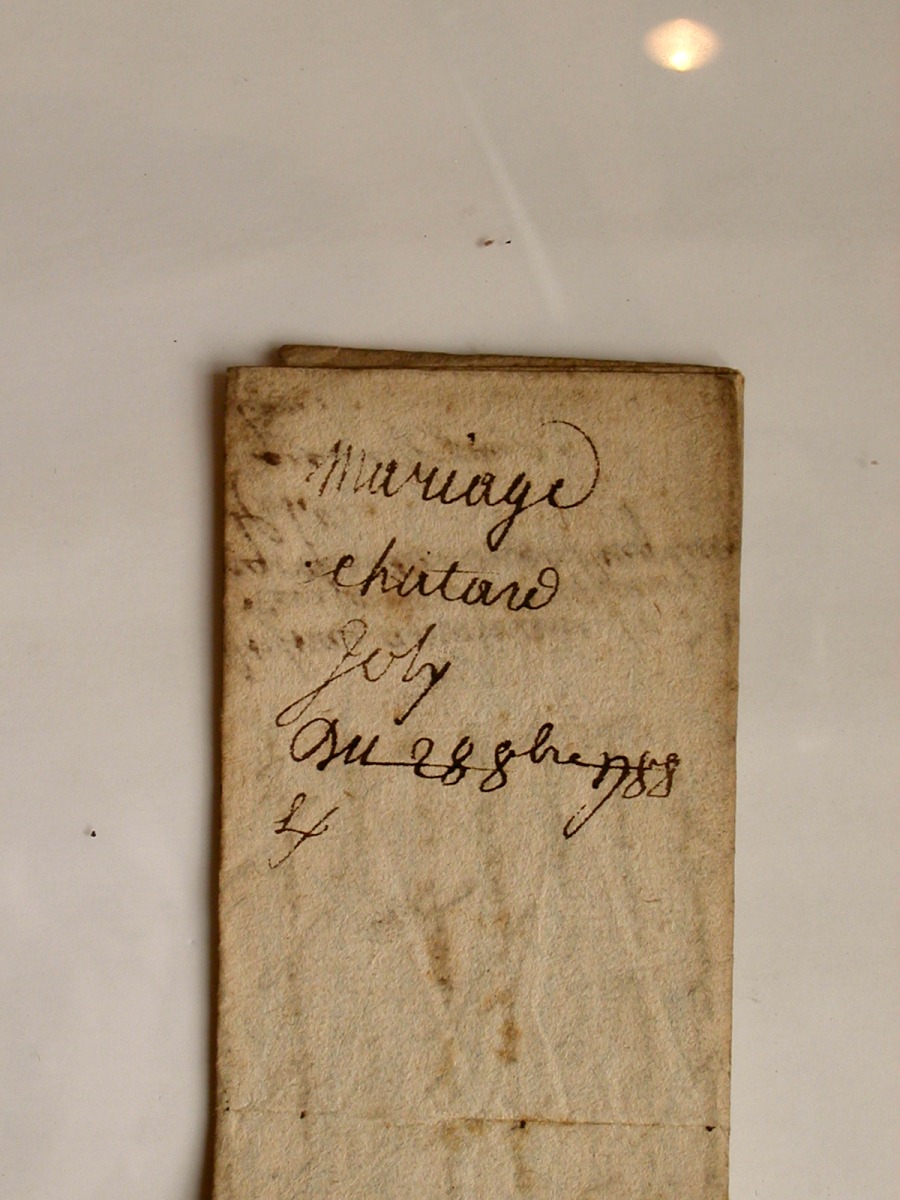 Mariage
chatard
Joly
Du 28 8bre 1788